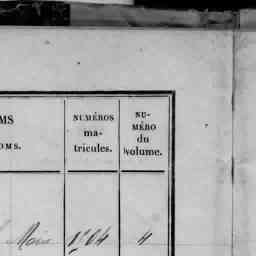 MS
OMS.
NUMÉROS
ma-
tricules.
NU-
MÉRO
du
volume.
4